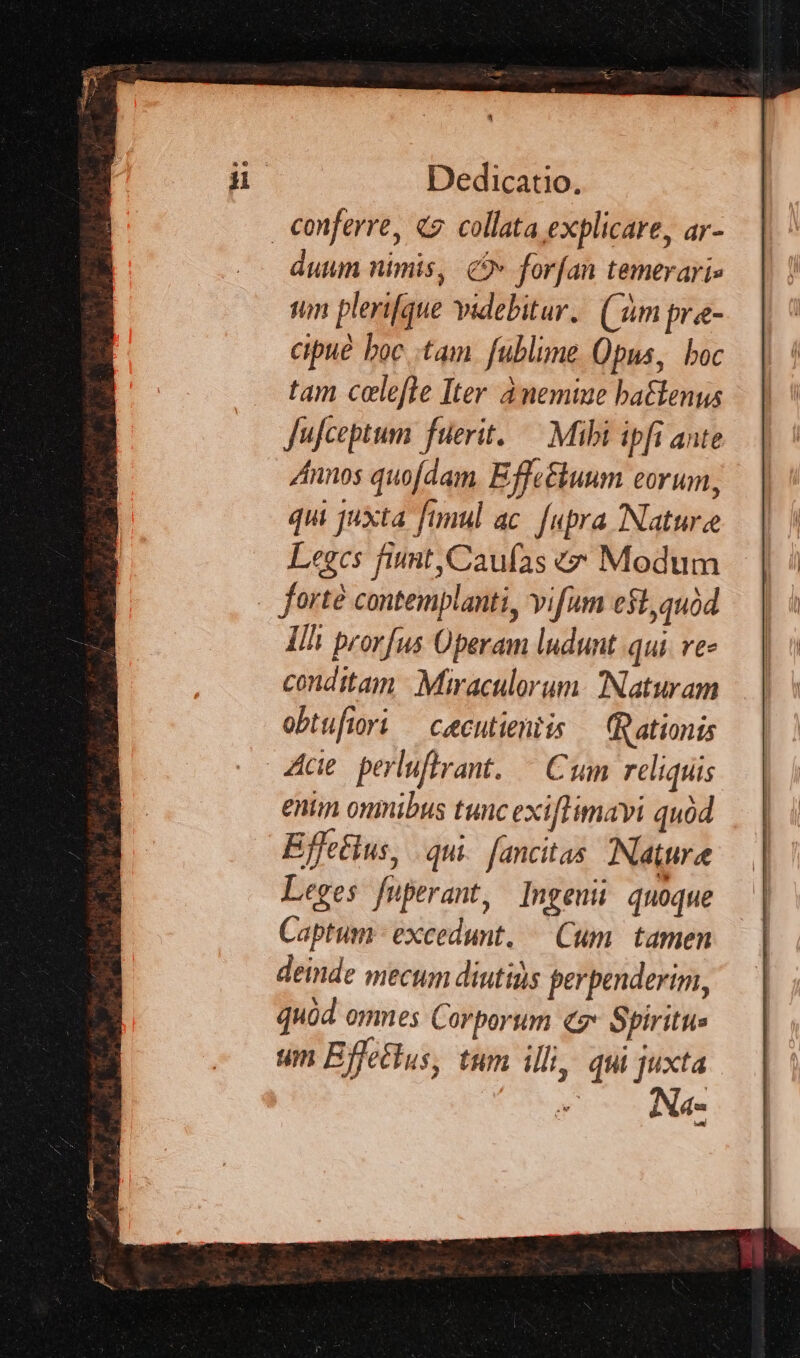 ii Dedicatio.
conferre, & collata explicare, ar-
duum nimis, & forſan temerari-
um pleriſque videbitur. Cùm præ-
cipuè hoc tam ſublime Opus, hoc
tam cœleſte Iter à nemine hactenus
ſuſceptum fuerit. Mihi ipſi ante
Annos quoſdam Effectuum eorum,
qui juxta ſimul ac ſupra Naturæ
Leges fiunt, Cauſas & Modum
fortè contemplanti, viſum eſt, quòd
Illi prorſus Operam ludunt qui re-
conditam Miraculorum Naturam
obtuſiori cæcutientis Rationis
Acie perluſtrant. Cum reliquis
enim omnibus tunc exiſtimavi quòd
Effectus, qui ſancitas Naturæ
Leges ſuperant, Ingenii quoque
Captum excedunt. Cum tamen
deinde mecum diutiùs perpenderim,
quòd omnes Corporum & Spiritu-
um Effectus, tum illi, qui juxta
Na-